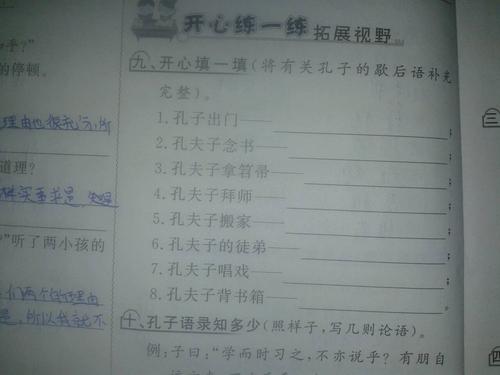 开心练一练 拓展视野
乎？”
的停顿。
理由也很充分，所
道理？
”听了两小孩的
九、开心填一填（将有关孔子的歇后语补充
完整）。
1.孔子出门——；
2.孔夫子念书——；
3.孔夫子拿笤帚——；
4.孔夫子拜师——；
5.孔夫子搬家——；
6.孔夫子的徒弟——；
7.孔夫子唱戏——；
8.孔夫子背书箱——。
十、孔子语录知多少（照样子，写几则论语）。
例：子曰：“学而时习之，不亦说乎？有朋自
三
四